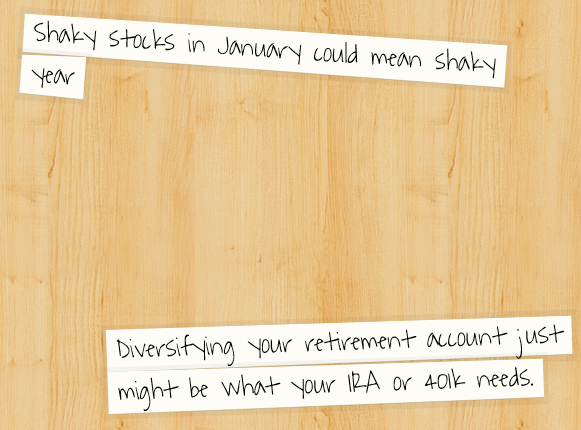 Shaky stocks in January could mean shaky
year
Diversifying your retirement account just
might be what your IRA or 401k needs.